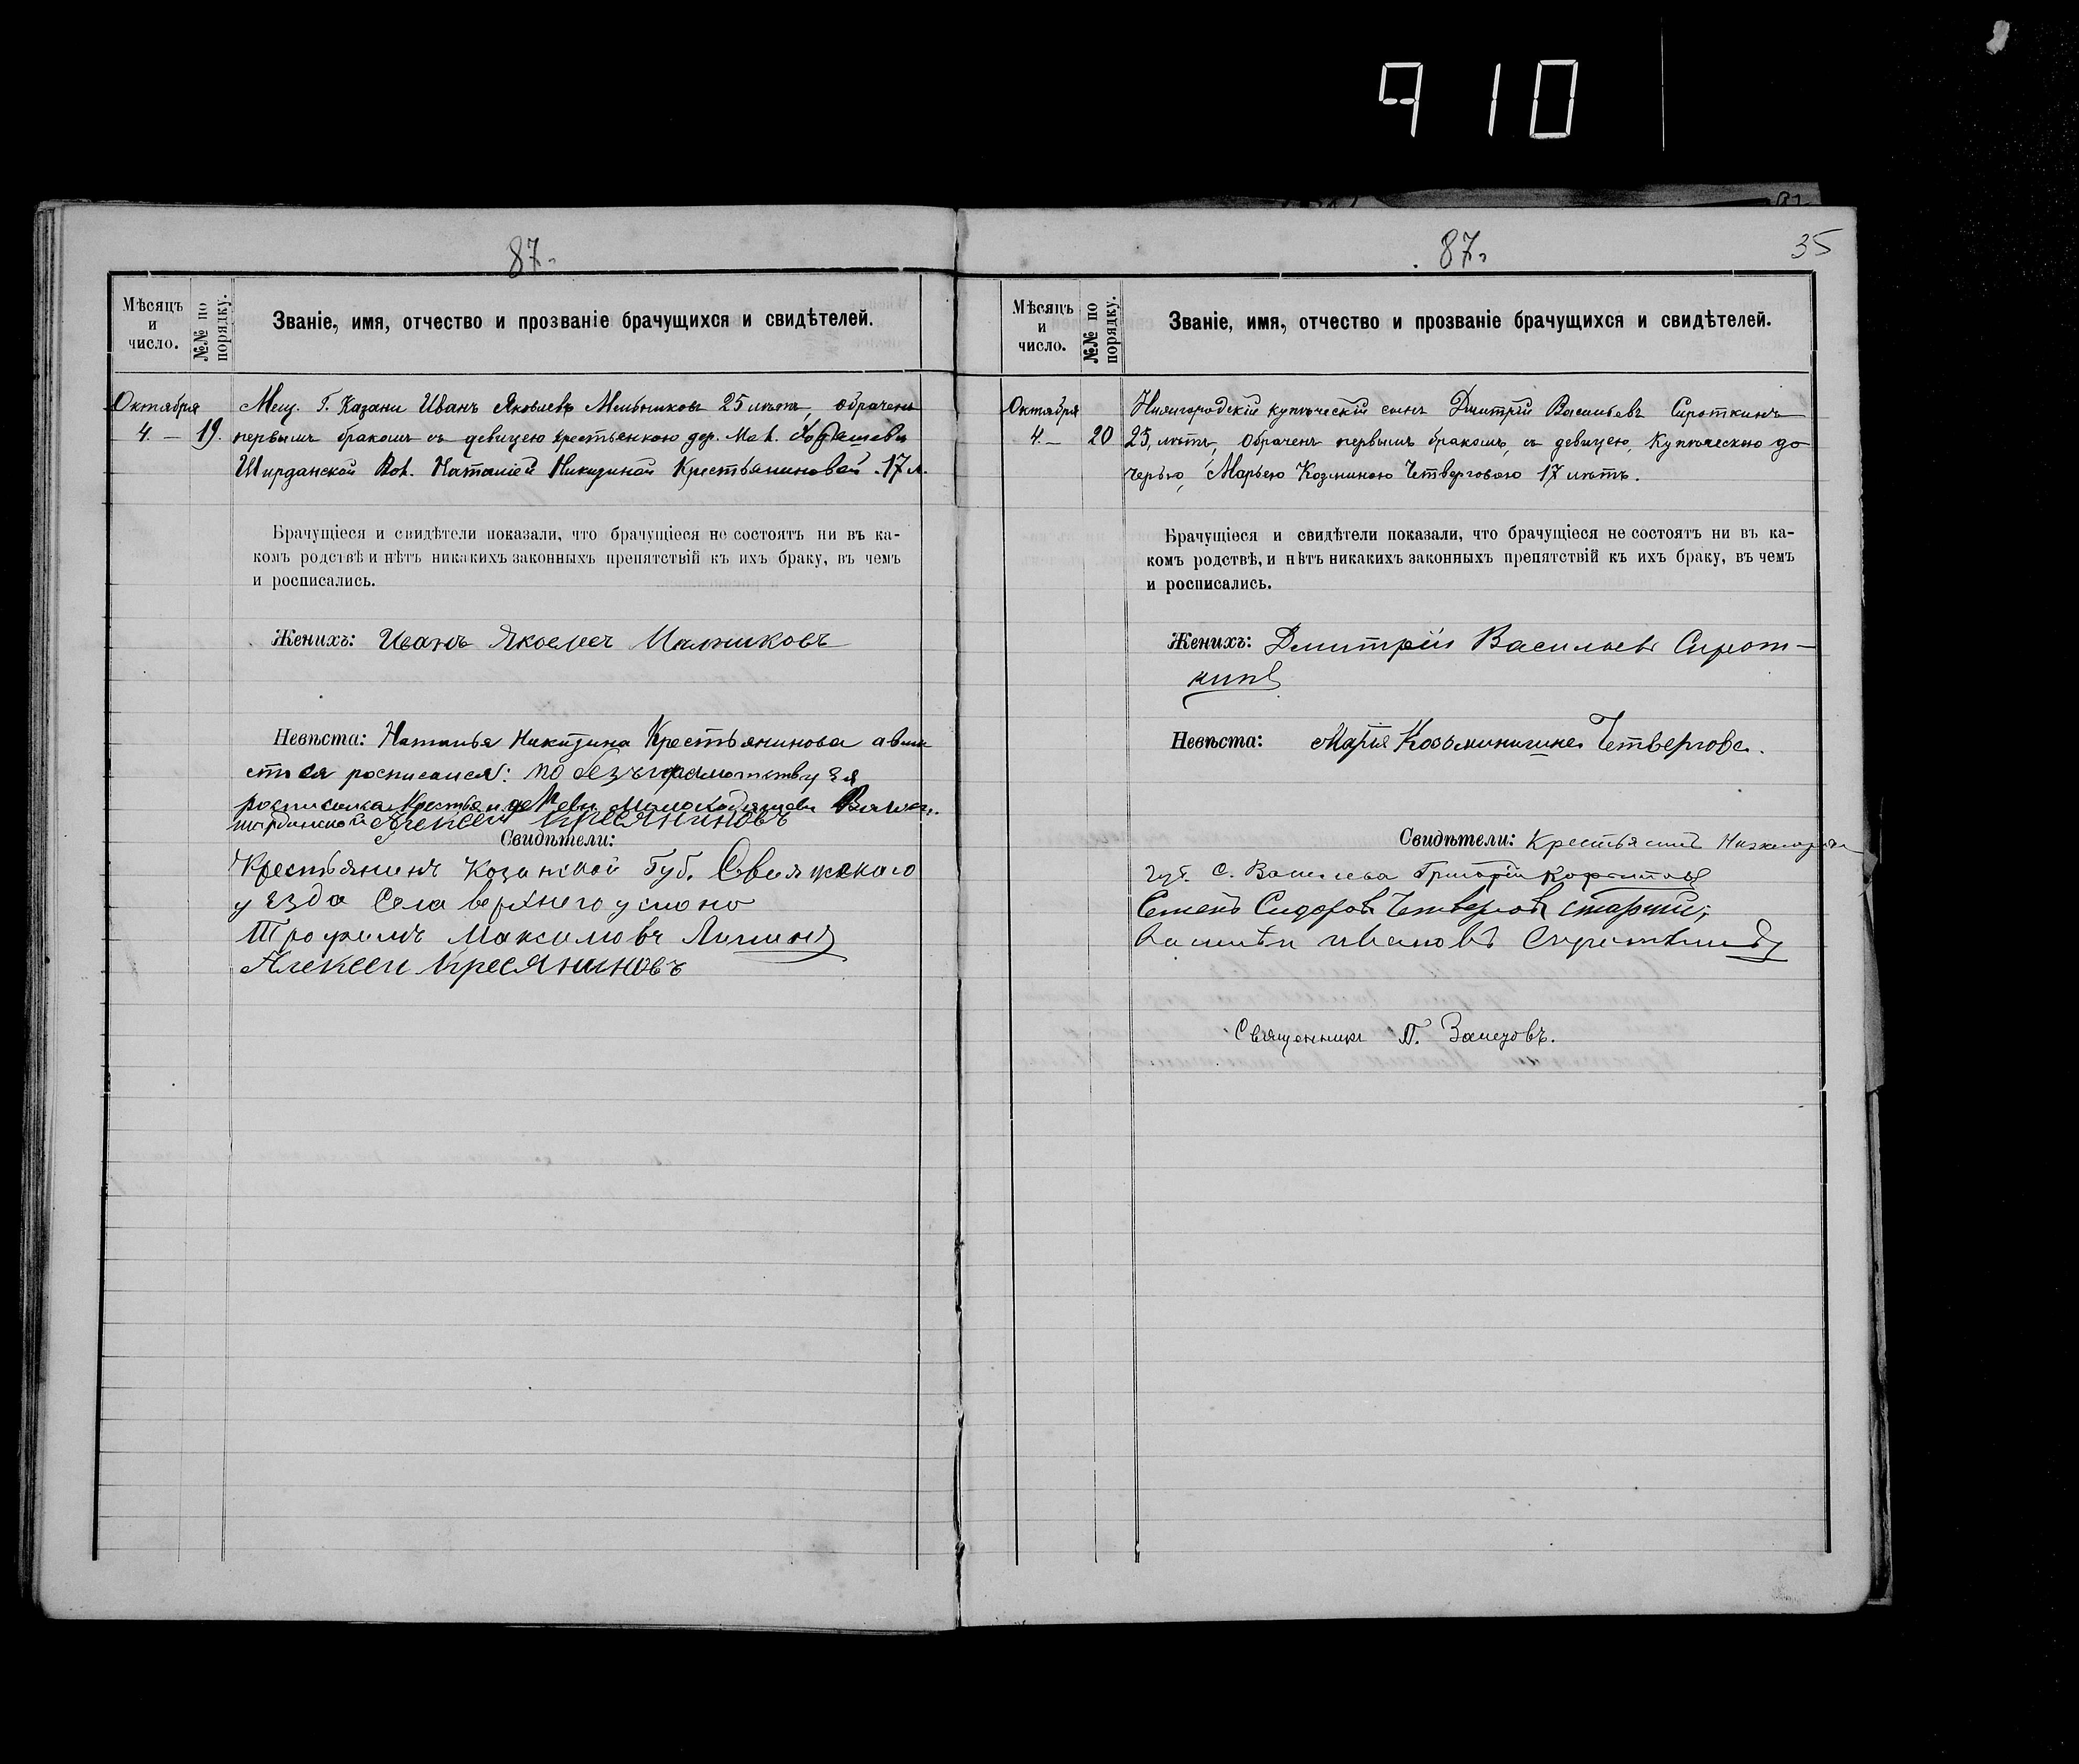 910
87.
Мѣсяцъ и число.
№№ по порядку.
Званіе, имя, отчество и прозваніе брачущихся и свидѣтелей.
Октября
4. — 19.
Мещ. Г. Казани Иванъ Яковлевъ Мельниковъ 25 лѣтъ, обрачен
первымъ бракомъ съ девицею крестьянкою дер.
Ширданской Вол. Наталіей Никитиной Крестьяниновой. 17 л.
Брачущіеся и свидѣтели показали, что брачущіеся не состоятъ ни въ ка-
комъ родствѣ и нѣтъ никакихъ законныхъ препятствій къ ихъ браку, въ чемъ
и росписались.
Женихъ: Иванъ Яковлеч Милниковъ
Невѣста: Наталья Никитина Крестьянинова
росписался: по безъграмотству ея
Алексеи Кресяниновъ
Свидѣтели:
Крестьянинъ Козанской Губ. Свияжскаго
уезда Села верхнего услоно
Трофимъ Максимовъ
Алексеи Кресяниновъ
87.
35
Мѣсяцъ и число.
№№ по порядку.
Званіе, имя, отчество и прозваніе брачущихся и свидѣтелей.
Октября
4. — 20
Нижегородскій купѣческій сынъ Дмитрій Васильевъ Сироткинъ
25, лѣтъ, Обраченъ первымъ бракомъ, съ девицею, Купѣческою до
черью, Марьею Козминою Четверговою 17 лѣтъ.
Брачущіеся и свидѣтели показали, что брачущіеся не состоятъ ни въ ка-
комъ родствѣ, и нѣтъ никакихъ законныхъ препятствій къ ихъ браку, въ чемъ
и росписались.
Женихъ: Дмитрій Васильевъ Сирот-
кинъ
Невѣста: Марія Козьминишна Четвергова.
Свидѣтели: Крестьянинъ
губ. С. Василева Григорій
Семенъ Сидоровъ Четверговъ старший;
Василѣи ивановъ Сироткинъ
Священникъ П. Залетовъ.